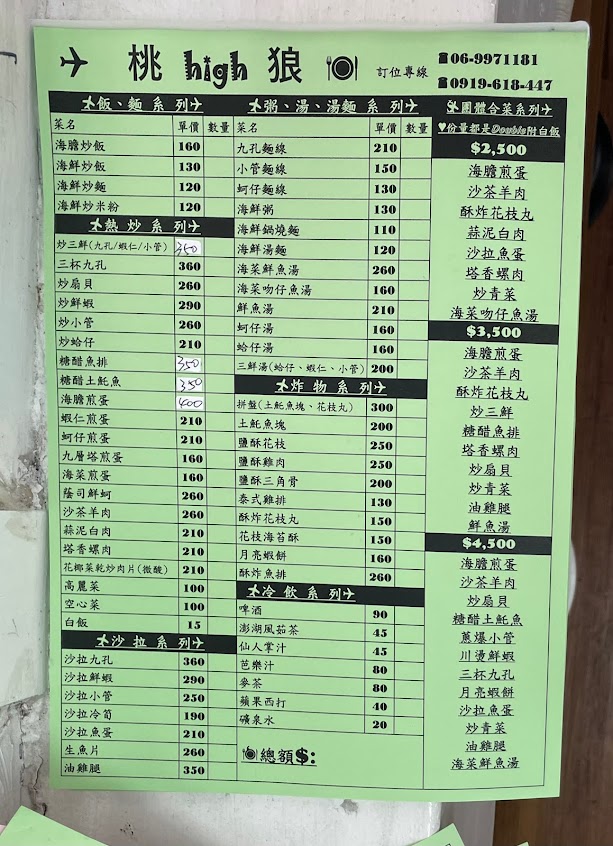 桃 high 狼 訂位專線
☎06-9971181
☎0919-618-447
飯、麵系列
菜名 單價 數量
海膽炒飯 160
海鮮炒飯 130
海鮮炒麵 120
海鮮炒米粉 120
熱炒系列
炒三鮮(九孔/蝦仁/小管) 350
三杯九孔 360
炒扇貝 260
炒鮮蝦 290
炒小管 260
炒蛤仔 210
糖醋魚排 350
糖醋土魠魚 350
海膽煎蛋 400
蝦仁煎蛋 210
蚵仔煎蛋 210
九層塔煎蛋 160
海菜煎蛋 160
蔭司鮮蚵 260
沙茶羊肉 260
蒜泥白肉 210
塔香螺肉 210
花椰菜乾炒肉片(微酸) 210
高麗菜 100
空心菜 100
白飯 15
沙拉系列
沙拉九孔 360
沙拉鮮蝦 290
沙拉小管 250
沙拉冷筍 190
沙拉魚蛋 210
生魚片 260
油雞腿 350
粥、湯、湯麵系列
菜名 單價 數量
九孔麵線 210
小管麵線 150
蚵仔麵線 130
海鮮粥 130
海鮮鍋燒麵 110
海鮮湯麵 120
海菜鮮魚湯 260
海菜吻仔魚湯 160
鮮魚湯 210
蚵仔湯 160
蛤仔湯 160
三鮮湯(蛤仔、蝦仁、小管) 200
炸物系列
拼盤(土魠魚塊、花枝丸) 300
土魠魚塊 200
鹽酥花枝 250
鹽酥雞肉 250
鹽酥三角骨 200
泰式雞排 130
酥炸花枝丸 150
花枝海苔酥 150
月亮蝦餅 160
酥炸魚排 260
冷飲系列
啤酒 90
澎湖風茹茶 45
仙人掌汁 45
芭樂汁 80
麥茶 80
蘋果西打 40
礦泉水 20
總額$:
團體合菜系列
♥份量都是Double附白飯
$2,500
海膽煎蛋
沙茶羊肉
酥炸花枝丸
蒜泥白肉
沙拉魚蛋
塔香螺肉
炒青菜
海菜吻仔魚湯
$3,500
海膽煎蛋
沙茶羊肉
酥炸花枝丸
炒三鮮
糖醋魚排
塔香螺肉
炒扇貝
炒青菜
油雞腿
鮮魚湯
$4,500
海膽煎蛋
沙茶羊肉
炒扇貝
糖醋土魠魚
蔥爆小管
川燙鮮蝦
三杯九孔
月亮蝦餅
沙拉魚蛋
炒青菜
油雞腿
海菜鮮魚湯